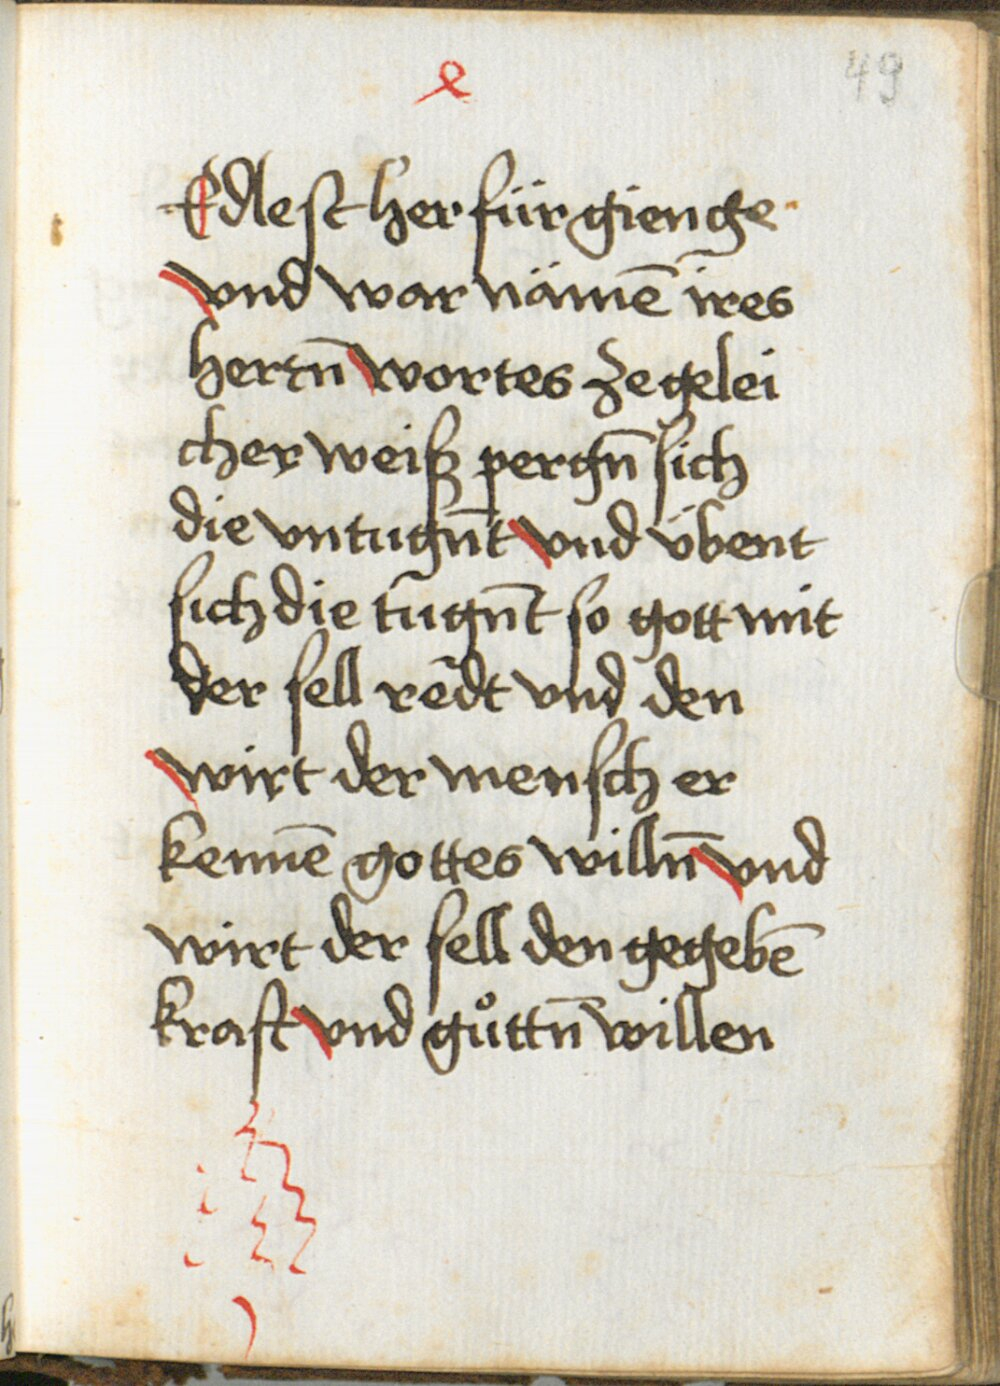 49
Edlest her für gienge
vnd war nämē ires
hertzn̄ wortes ze gelei
cher weiß pergn̄ sich
die vntugn̄t vnd übent
sich die tūgn̄t so gott mit
der sell rēdt vnd den
wirt der mensch er
kennē gottes willn̄ vnd
wirt der sell den gegebē
kraft vnd gůttn̄ willen